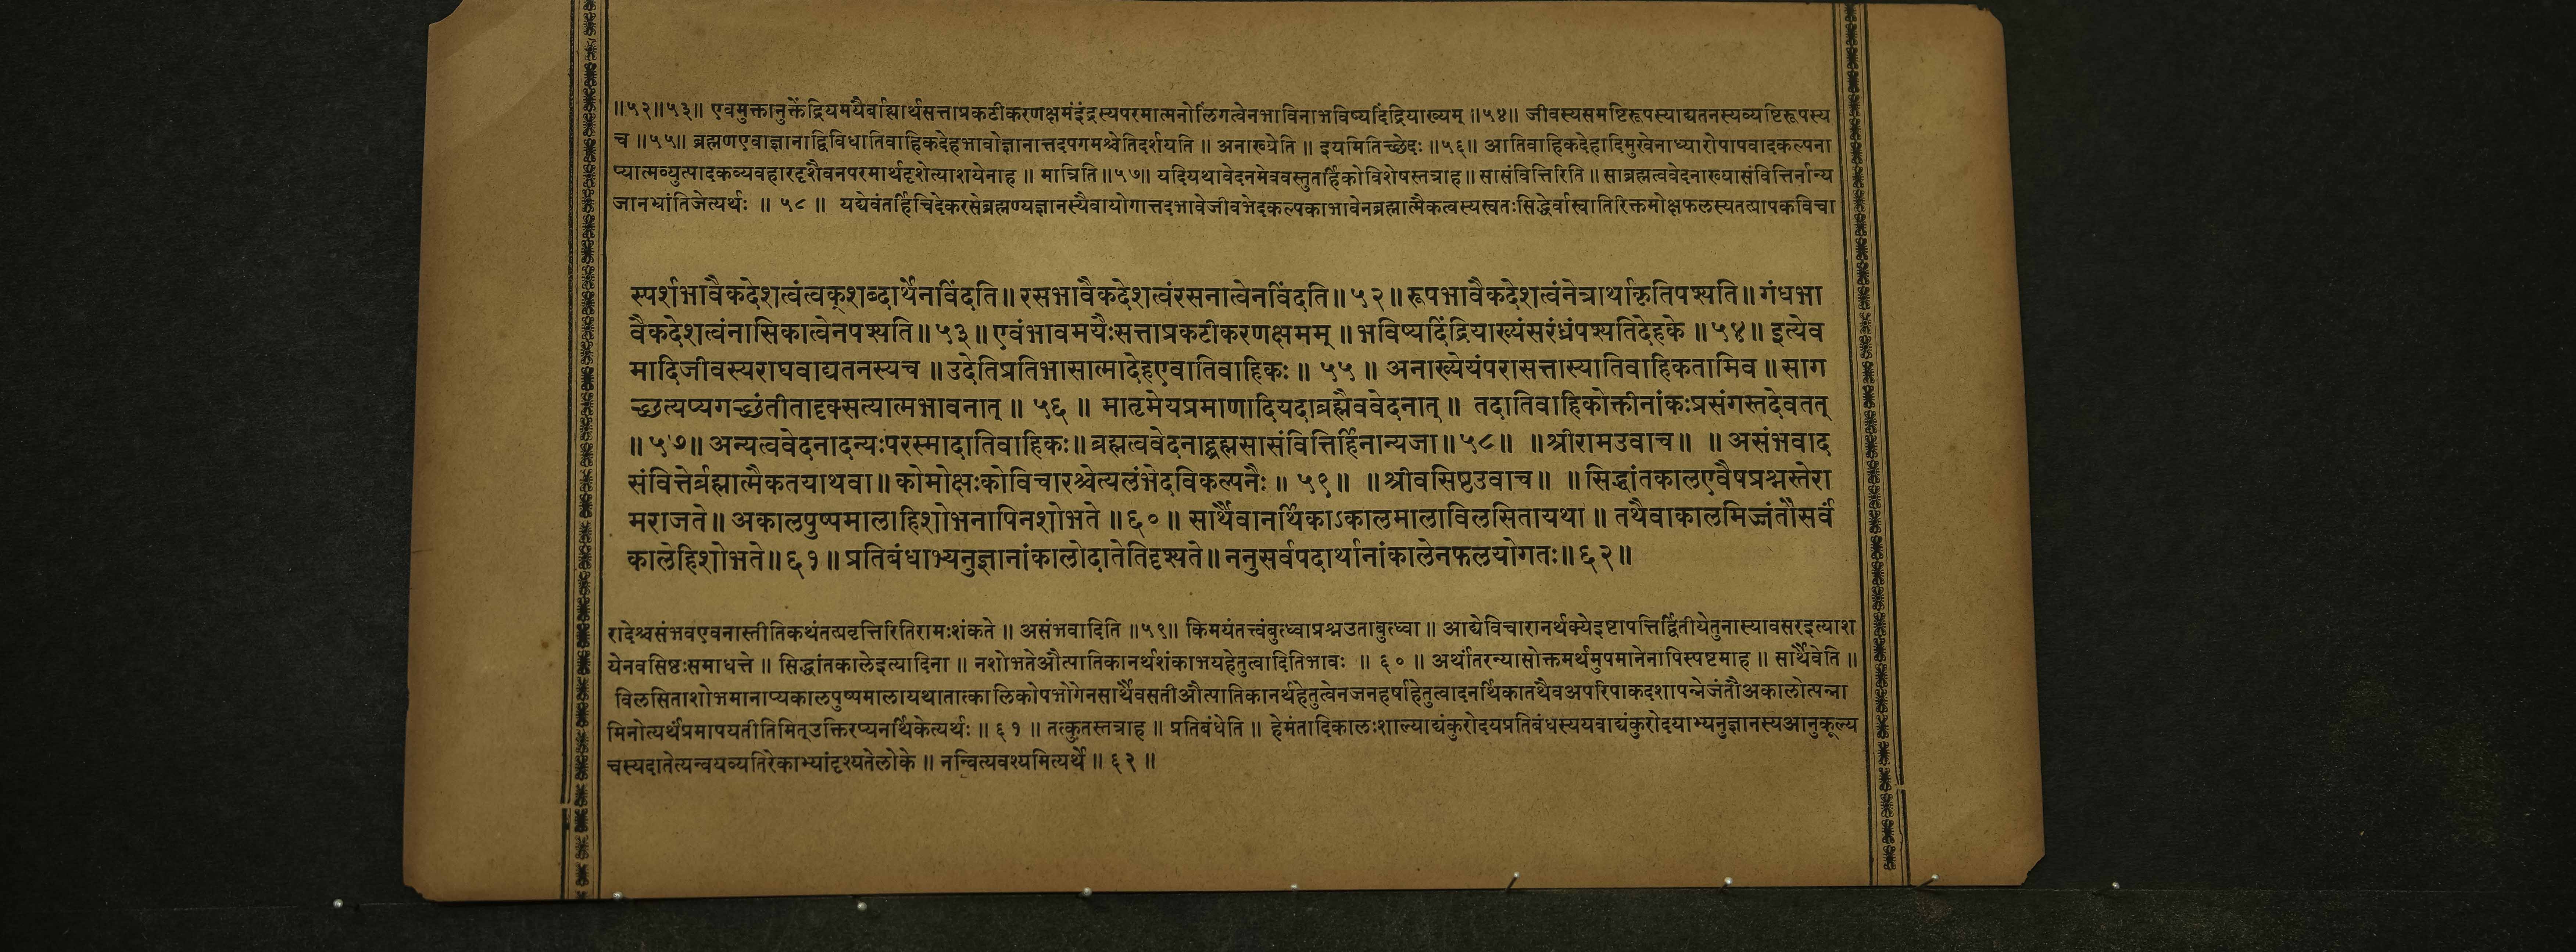 ॥५२॥५३॥ एवमुक्तानुक्तेंद्रियमयैर्बाह्यार्थसत्ताप्रकटीकरणक्षमंइंद्रस्यपरमात्मनोलिंगत्वेनभाविनाभविष्यदिंद्रियाख्यम् ॥५४॥ जीवस्यसमष्टिरूपस्याद्यतनस्यव्यष्टिरूपस्य
च ॥५५॥ ब्रह्मणएवाज्ञानाद्विविधातिवाहिकदेहभावोज्ञानात्तदपगमश्चेतिदर्शयति ॥ अनाख्येति ॥ इयमितिच्छेदः ॥५६॥ आतिवाहिकदेहादिमुखेनाध्यारोपापवादकल्पना
प्यात्मव्युत्पादकव्यवहारदृशैवनपरमार्थदृशेत्याशयेनाह ॥ मात्रिति ॥५७॥ यदियथावेदनमेववस्तुतर्हिकोविशेषस्तत्राह ॥ सासंवित्तिरिति ॥ साब्रह्मत्ववेदनाख्यासंवित्तिर्नान्य
जानभ्रांतिजेत्यर्थः ॥ ५८ ॥ यद्येवंतर्हिचिदेकरसेब्रह्मण्यज्ञानस्यैवायोगात्तदभावेजीवभेदकल्पकाभावेनब्रह्मात्मैकत्वस्यस्वतःसिद्धेर्वास्वातिरिक्तमोक्षफलस्यतत्प्रापकविचा
स्पर्शभावैकदेशत्वंत्वक्शब्दार्थेनविंदति ॥ रसभावैकदेशत्वंरसनात्वेनविंदति ॥ ५२ ॥ रूपभावैकदेशत्वंनेत्रार्थाकृतिपश्यति ॥ गंधभा
वैकदेशत्वंनासिकात्वेनपश्यति ॥ ५३ ॥ एवंभावमयैःसत्ताप्रकटीकरणक्षमम् ॥ भविष्यदिंद्रियाख्यंसरंध्रंपश्यतिदेहके ॥ ५४ ॥ इत्येव
मादिजीवस्यराघवाद्यतनस्यच ॥ उदेतिप्रतिभासात्मादेहएवातिवाहिकः ॥ ५५ ॥ अनाख्येयंपरासत्तास्यातिवाहिकतामिव ॥ साग
च्छत्यप्यगच्छंतीतादृक्सत्यात्मभावनात् ॥ ५६ ॥ मातृमेयप्रमाणादियदाब्रह्मैववेदनात् ॥ तदातिवाहिकोक्तीनांकःप्रसंगस्तदेवतत्
॥ ५७ ॥ अन्यत्ववेदनादन्यःपरस्मादातिवाहिकः ॥ ब्रह्मत्ववेदनाद्ब्रह्मसासंवित्तिर्हिनान्यजा ॥ ५८ ॥ ॥ श्रीरामउवाच ॥ ॥ असंभवाद
संवित्तेर्ब्रह्मात्मैकतयाथवा ॥ कोमोक्षःकोविचारश्चेत्यलंभेदविकल्पनैः ॥ ५९ ॥ ॥ श्रीवसिष्ठउवाच ॥ ॥ सिद्धांतकालएवैषप्रश्नस्तेरा
मराजते ॥ अकालपुष्पमालाहिशोभनापिनशोभते ॥ ६० ॥ सार्थैवानर्थिकाऽकालमालाविलसितायथा ॥ तथैवाकालमिज्जंतौसर्वं
कालेहिशोभते ॥ ६१ ॥ प्रतिबंधाभ्यनुज्ञानांकालोदातेतिदृश्यते ॥ ननुसर्वपदार्थानांकालेनफलयोगतः ॥ ६२ ॥
रादेश्चसंभवएवनास्तीतिकथंतत्प्रवृत्तिरितिरामःशंकते ॥ असंभवादिति ॥५९॥ किमयंतत्त्वंबुध्वाप्रश्नउताबुध्वा ॥ आद्येविचारानर्थक्येइष्टापत्तिर्द्वितीयेतुनास्यावसरइत्याश
येनवसिष्ठःसमाधत्ते ॥ सिद्धांतकालेइत्यादिना ॥ नशोभतेऔत्पातिकानर्थशंकाभयहेतुत्वादितिभावः ॥ ६० ॥ अर्थांतरन्यासोक्तमर्थमुपमानेनापिस्पष्टमाह ॥ सार्थैवेति ॥
विलसिताशोभमानाप्यकालपुष्पमालायथातात्कालिकोपभोगेनसार्थैवसतीऔत्पातिकानर्थहेतुत्वेनजनहर्षाहेतुत्वादनर्थिकातथैवअपरिपाकदशापन्नेजंतौअकालोत्पन्ना
मिनोत्यर्थंप्रमापयतीतिमित्उक्तिरप्यनर्थिकेत्यर्थः ॥ ६१ ॥ तत्कुतस्तत्राह ॥ प्रतिबंधेति ॥ हेमंतादिकालःशाल्याद्यंकुरोदयप्रतिबंधस्ययवाद्यंकुरोदयाभ्यनुज्ञानस्यआनुकूल्य
चस्यदातेत्यन्वयव्यतिरेकाभ्यांदृश्यतेलोके ॥ नन्वित्यवश्यमित्यर्थे ॥ ६२ ॥